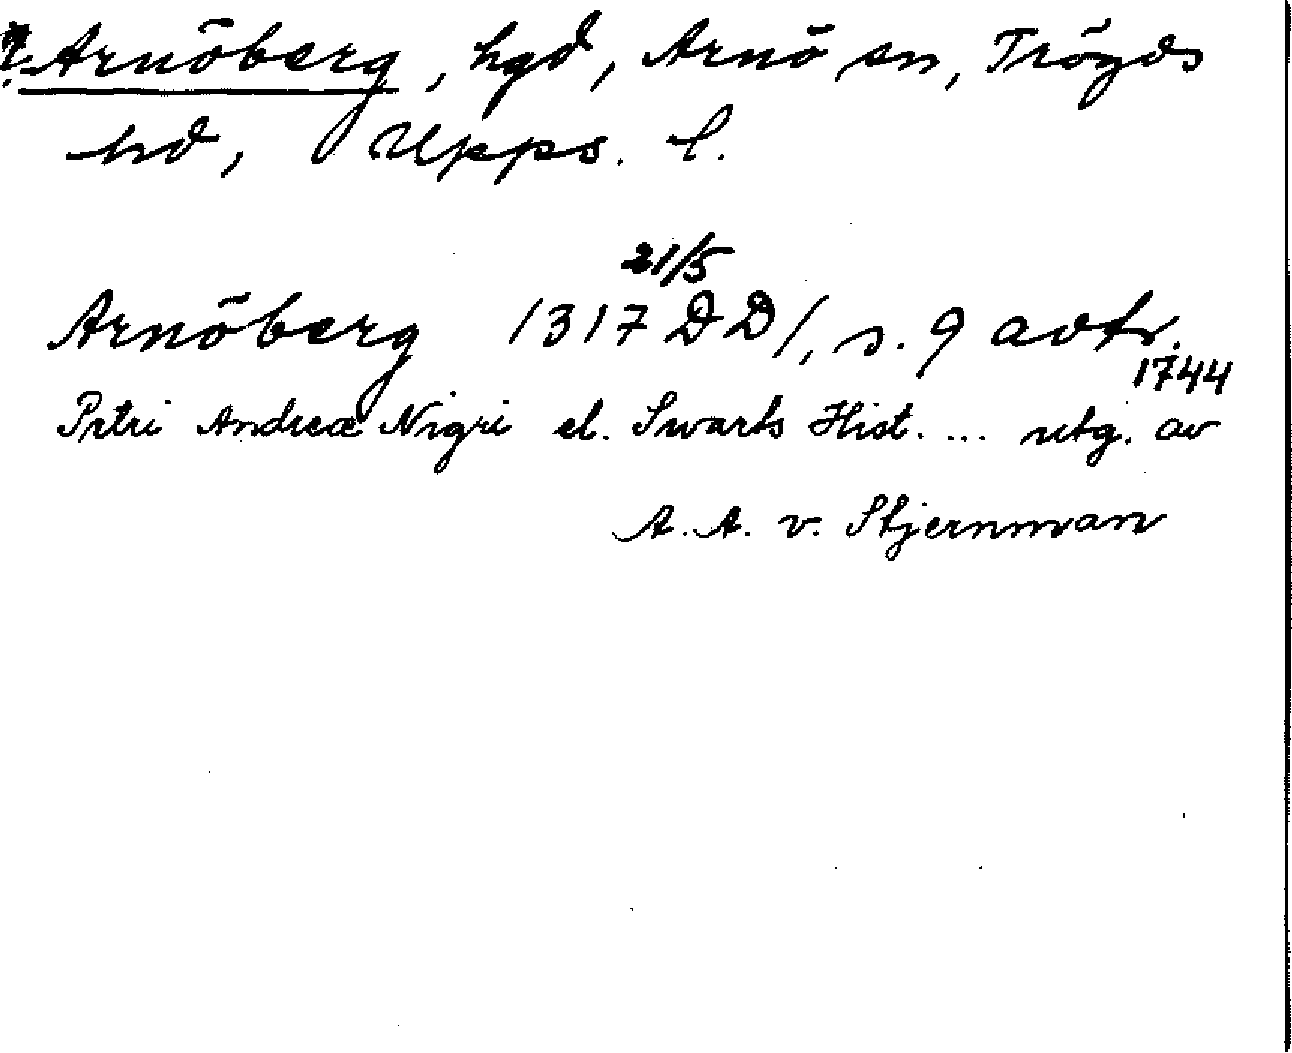 ? Arnöberg, hgd, Arnö sn, Trögds
hd, Upps. l.
21/5
Arnöberg 1317 DD/, s. 9 avtr.
1744
Petri Andreæ Nigri el. Swarts Hist. ... utg. av
A. A. v. Stjernman